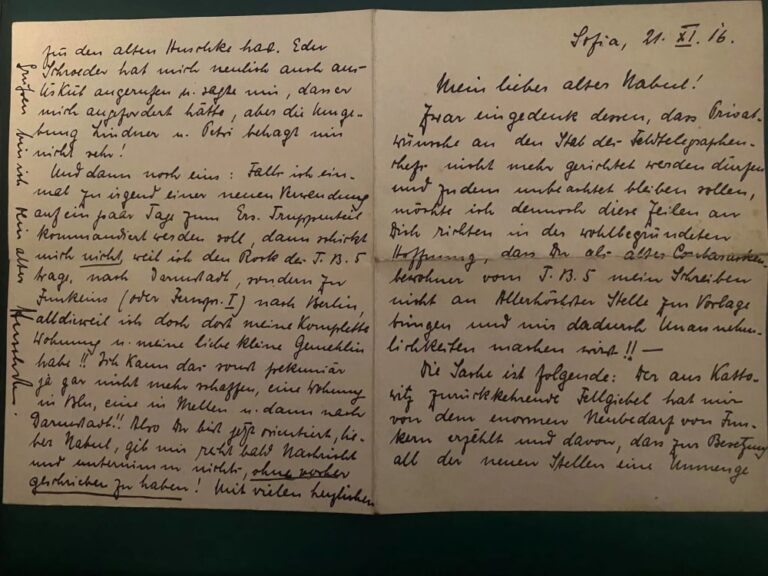 Sofia, 21. XI. 16.
Mein lieber alter Nabul!
Zwar eingedenk dessen, dass Privat-
wünsche an den Stab des Feldtelegraphen-
chefs nicht mehr gerichtet werden dürfen
und zudem unbeachtet bleiben sollen,
möchte ich dennoch diese Zeilen an
Dich richten in der wohlbegründeten
Hoffnung, dass Du als alter
bewohner vom T. B. 5 mein Schreiben
nicht an Allerhöchster Stelle zur Vorlage
bringen und mir dadurch Unannehm-
lichkeiten machen wirst!! —
Die Sache ist folgende: Der aus Katto-
witz zurückkehrende Fellgiebel hat mir
von dem enormen Neubedarf von Fun-
kern erzählt und davon, dass zur Besetzung
all der neuen Stellen eine Unmenge
zu den alten Huschke hat. Eder
Schroeder hat mich neulich auch aus
Üsküb angerufen u. sagte mir, dass er
mich angefordert hätte, aber die Umge-
bung Lindner u. Petri behagt mir
nicht sehr!
Und dann noch eins: Falls ich ein-
mal zu irgend einer neuen Verwendung
auf ein paar Tage zum Ers. Truppenteil
kommandiert werden soll, dann schickt
mich nicht, weil ich den Rock des T. B. 5
trage, nach Darmstadt, sondern zu
(oder I) nach Berlin,
alldieweil ich doch dort meine komplette
Wohnung u. meine liebe kleine Gemahlin
habe!! Ich kann das sonst pekuniär
ja gar nicht mehr schaffen, eine Wohnung
in Bln, eine in u. dann noch
Darmstadt!! Also Du bist jetzt orientiert, lie-
ber Nabul, gib mir recht bald Nachricht
und unternimm nichts, ohne vorher
geschrieben zu haben! Mit vielen herzlichen
Grüßen bin ich Dein alter